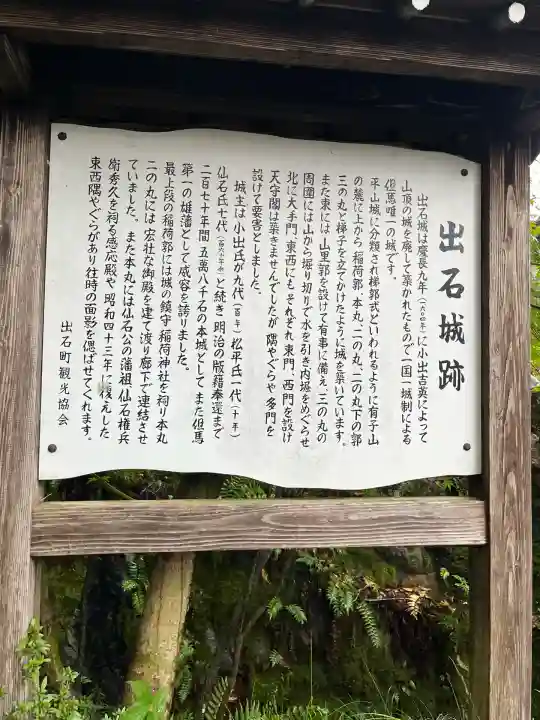 出石城跡
出石城は慶長九年(一六〇四年)に小出吉英によって
山頂の城を廃して築かれたもので一国一城制による
但馬唯一の城です。
平山城に分類され梯郭式といわれるように有子山
の麓に上から 稲荷郭、本丸、二の丸、二の丸下の郭
三の丸と梯子を立てかけたように城を築いています。
また東には 山里郭を設けて有事に備え、三の丸の
周囲には山から堀り切りで水を引き内堀をめぐらせ
北に大手門、東西にもそれぞれ東門、西門を設け
天守閣は築きませんでしたが 隅やぐらや多門を
設けて要害としました。
城主は小出氏が九代(百年)松平氏一代(十年)
仙石氏七代
と続き 明治の版籍奉還まで
二百七十年間 五萬八千石の本城として また但馬
第一の雄藩として威容を誇りました。
最上段の稲荷郭には城の鎮守 稲荷神社を祀り 本丸
二の丸には 宏壮な御殿を建て渡り廊下で連結させ
ていました。また本丸には仙石公の藩祖、仙石権兵
衛秀久を祀る感応殿や 昭和四十三年に復えした
東西隅やぐらがあり往時の面影を偲ばせてくれます。
出石町観光協会